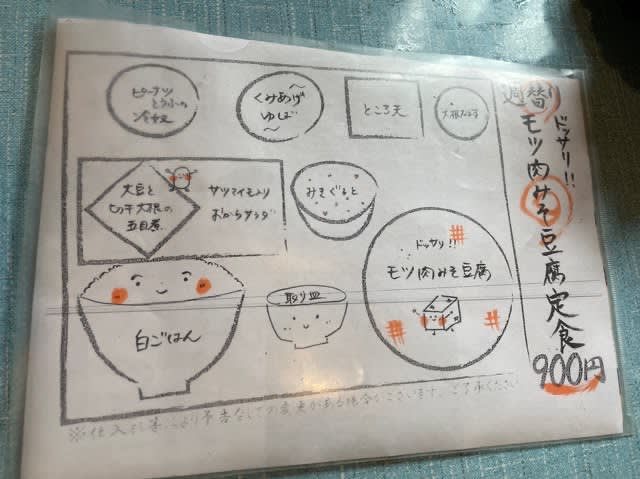 週替り
ドッサリ!!
モツ肉みそ豆腐定食
900円
ピーナツ
とうふの
冷奴
くみあげ
ゆば
ところ天
大豆と
切干大根の
五目煮
サツマイモ入り
おからサラダ
ドッサリ!!
モツ肉みそ豆腐
白ごはん
取り皿
※仕入れ等により予告なしでの変更がある場合がございます。ご了承ください